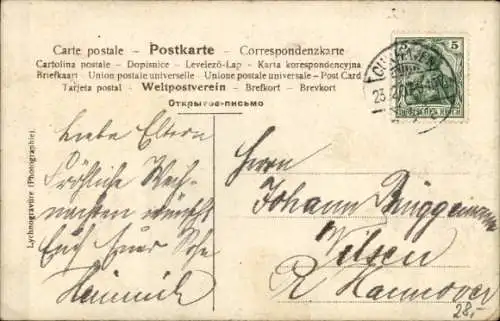 Carte postale – Postkarte – Correspondenzkarte
Cartolina postale – Dopisnice – Levelező-Lap – Karta korespondencyjna
Briefkaart – Union postale universelle – Unione postale universale – Post Card
Tarjeta postal – Weltpostverein – Brefkort – Brevkort
Открытое-письмо
5
CUXHAVEN
23.
DEUTSCHES REICH
Lychnogravüre (Phonographie).
Liebe Eltern
Fröhliche Weih-
nachten wünscht
Euch Euer Sohn
Heinrich
Herrn
Johann Brüggemann
Vilsen
Hannover
28,-